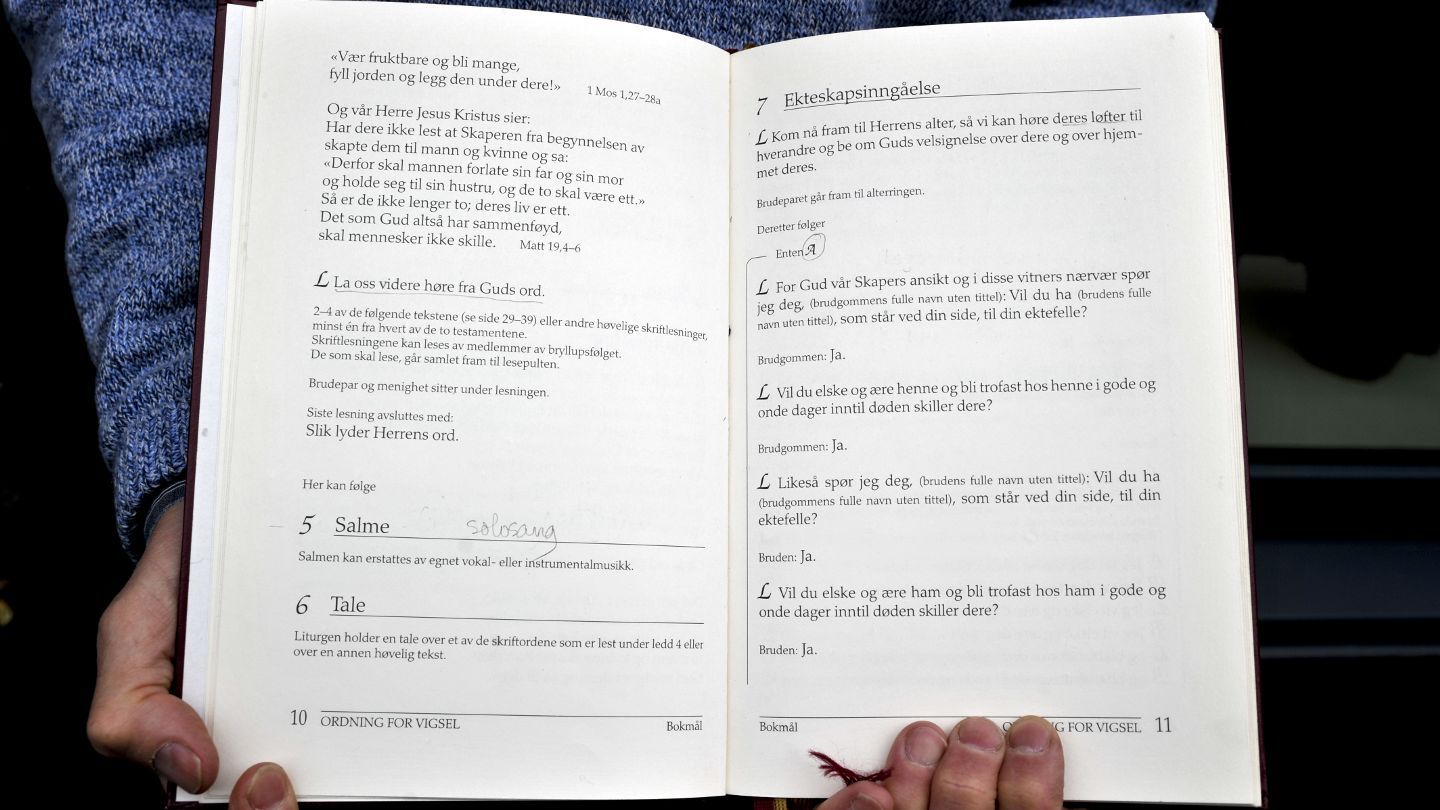 «Vær fruktbare og bli mange,
fyll jorden og legg den under dere!» 1 Mos 1,27–28a
Og vår Herre Jesus Kristus sier:
Har dere ikke lest at Skaperen fra begynnelsen av
skapte dem til mann og kvinne og sa:
«Derfor skal mannen forlate sin far og sin mor
og holde seg til sin hustru, og de to skal være ett.»
Så er de ikke lenger to; deres liv er ett.
Det som Gud altså har sammenføyd,
skal mennesker ikke skille. Matt 19,4–6
L La oss videre høre fra Guds ord.
2–4 av de følgende tekstene (se side 29–39) eller andre høvelige skriftlesninger,
minst én fra hvert av de to testamentene.
Skriftlesningene kan leses av medlemmer av bryllupsfølget.
De som skal lese, går samlet fram til lesepulten.
Brudepar og menighet sitter under lesningen.
Siste lesning avsluttes med:
Slik lyder Herrens ord.
Her kan følge
5 Salme solosang
Salmen kan erstattes av egnet vokal- eller instrumentalmusikk.
6 Tale
Liturgen holder en tale over et av de skriftordene som er lest under ledd 4 eller
over en annen høvelig tekst.
10 ORDNING FOR VIGSEL Bokmål
7 Ekteskapsinngåelse
L Kom nå fram til Herrens alter, så vi kan høre deres løfter til
hverandre og be om Guds velsignelse over dere og over hjem-
met deres.
Brudeparet går fram til alterringen.
Deretter følger
Enten A
L For Gud vår Skapers ansikt og i disse vitners nærvær spør
jeg deg, (brudgommens fulle navn uten tittel): Vil du ha (brudens fulle
navn uten tittel), som står ved din side, til din ektefelle?
Brudgommen: Ja.
L Vil du elske og ære henne og bli trofast hos henne i gode og
onde dager inntil døden skiller dere?
Brudgommen: Ja.
L Likeså spør jeg deg, (brudens fulle navn uten tittel): Vil du ha
(brudgommens fulle navn uten tittel), som står ved din side, til din
ektefelle?
Bruden: Ja.
L Vil du elske og ære ham og bli trofast hos ham i gode og
onde dager inntil døden skiller dere?
Bruden: Ja.
Bokmål ORDNING FOR VIGSEL 11